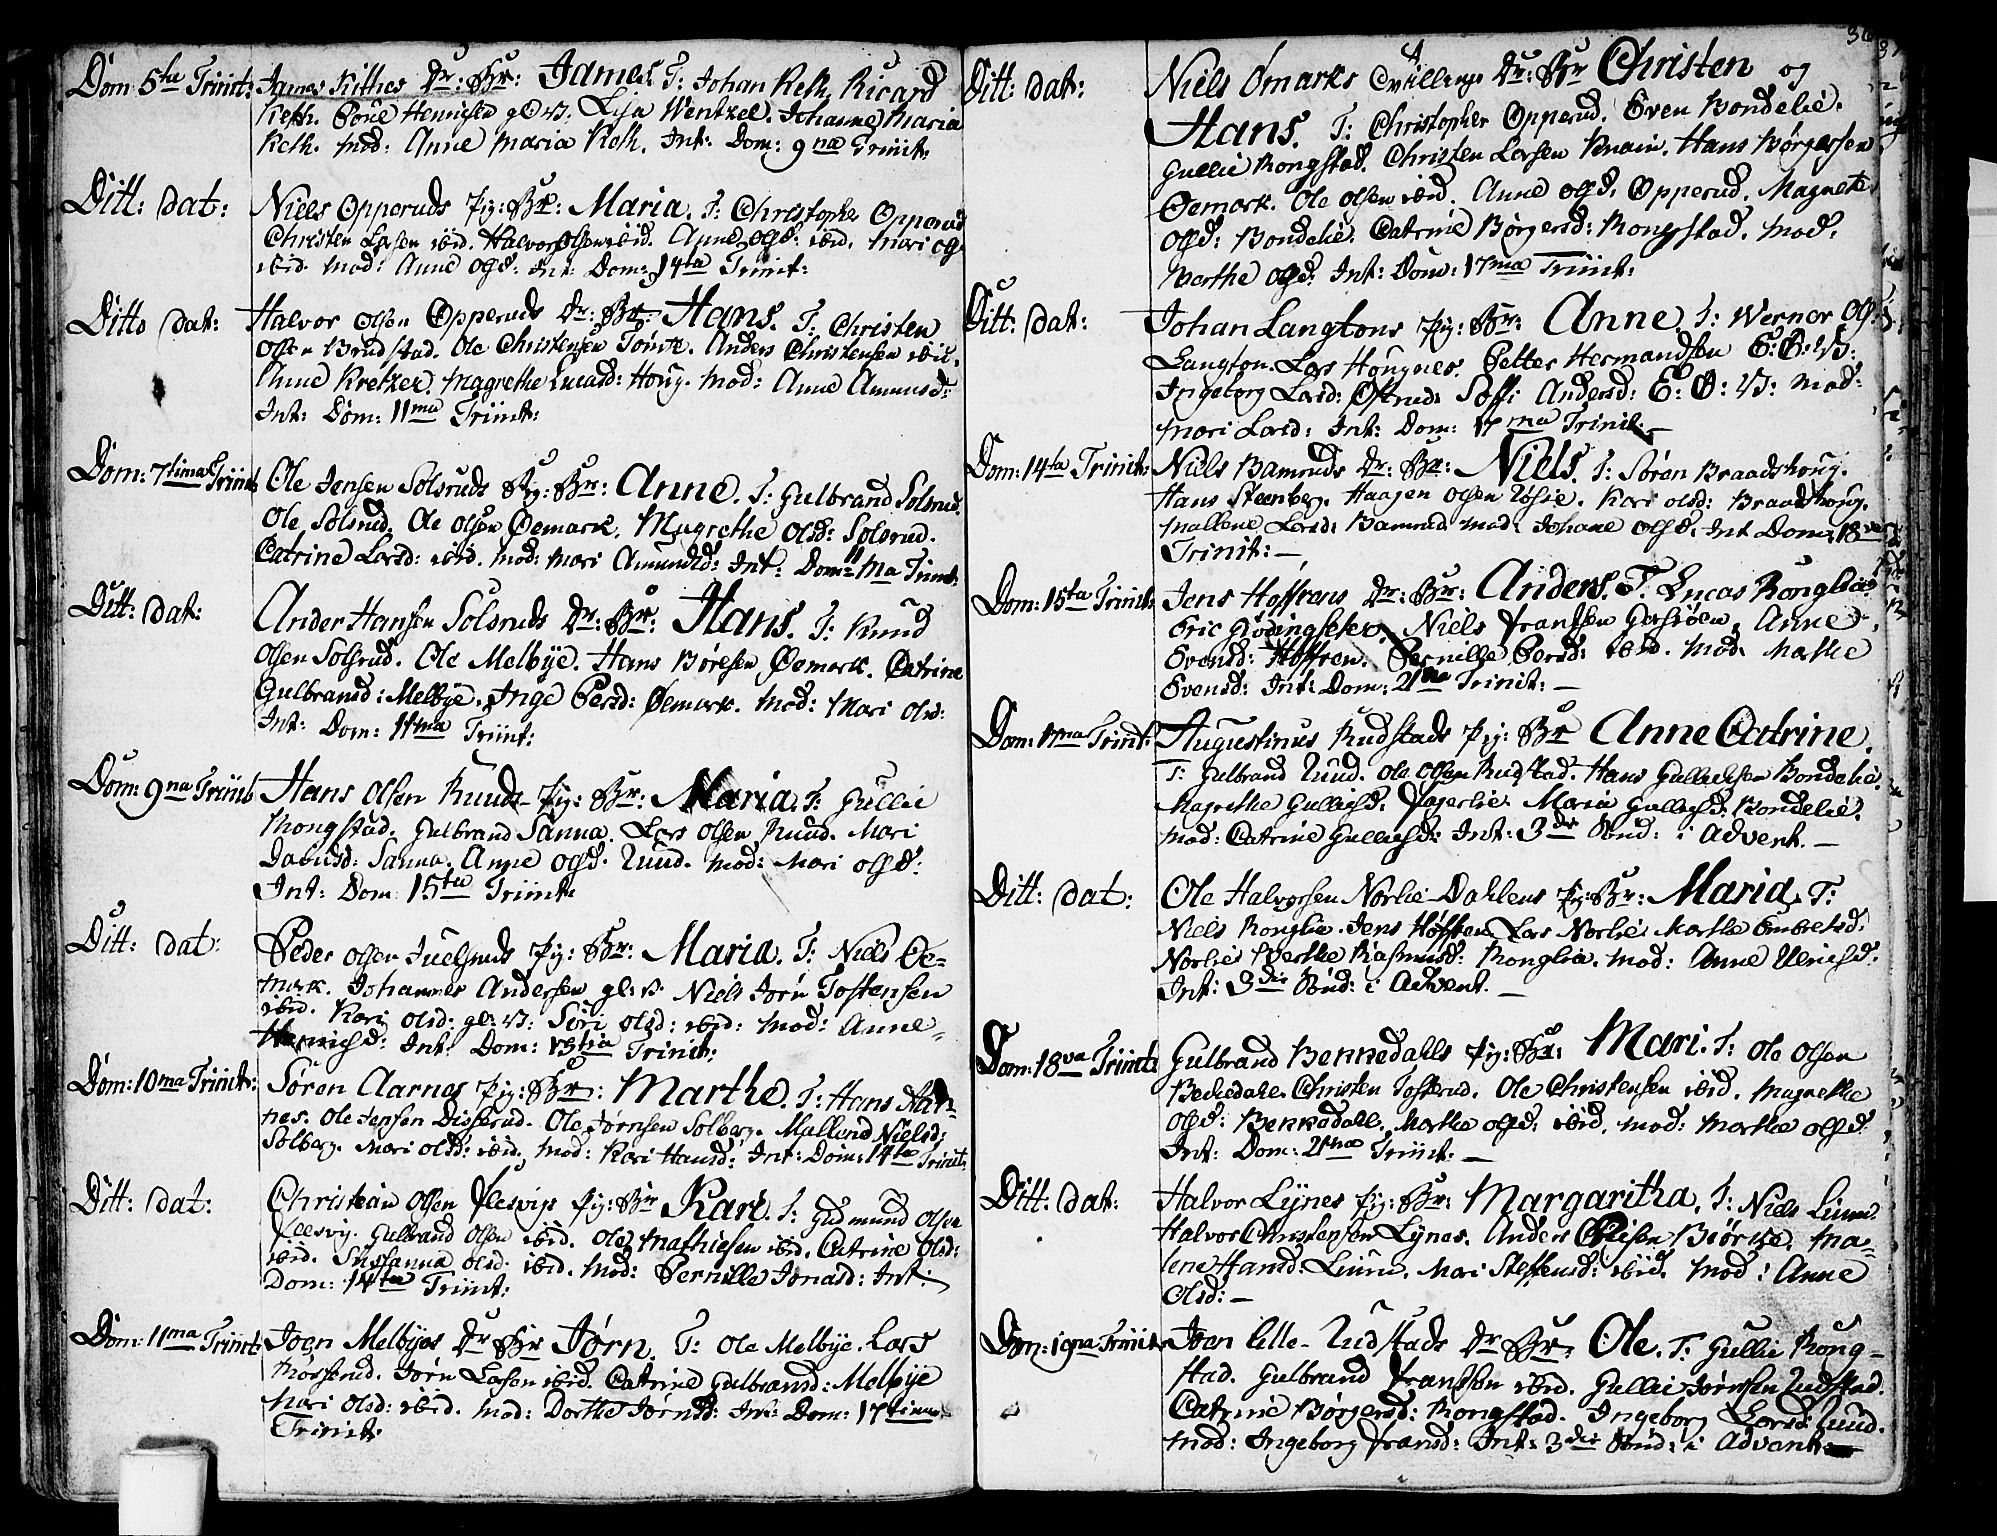 Dom 5te Trinit: James Kittes Dr: Br: James. T: Johan Keth, Ricard
Keth. Poul Hennigsen gl: V: Lisa Wentzel. Johanne Maria
Keth. Mod: Anne Maria Keth. Int: Dom: 9na Trinit:
Ditt: dat: Niels Opperuds Pig: Br: Maria. T: Christopher Opperud
Christen Larsen ibid. Halvor Olsen ibid. Anne Olsd: ibid. Mari Ols
ibid. Mod: Anne Olsd: Int: Dom: 14ta Trinit:
Ditto dat: Halvor Olsen Opperuds Dr: Br: Hans. T: Christen
Olsen Brudstad. Ole Christensen Tomte. Anders Christensen ibid.
Anne Kretzer. Magrethe Lucasd: Houg. Mod: Anne Amunsd:
Int: Dom: 11ma Trinit:
Dom: 7tima Trinit: Ole Jensen Solsruds Pig: Br: Anne. T: Gulbrand Solsrud.
Ole Solsrud. Ole Olsen Oemark. Magrethe Olsd: Solsrud.
Catrine Larsd: ibid. Mod: Mari Amundsd: Int: Dom: 11ma Trinit:
Ditt: dat: Ander Hansen Solsruds Dr: Br: Hans. T: Knud
Olsen Solsrud. Ole Melbye. Hans Børesen Øemark. Catrine
Gulbransd: Melbye. Inge Persd: Øemark. Mod: Mari Olsd:
Int: Dom: 11ma Trinit:
Dom: 9na Trinit Hans Olsen Ruuds Pig: Br: Maria. T: Gullie
Rongstad. Gulbrand Sanna. Lars Olsen Ruud. Mari
Sanna. Anne Olsd: Ruud. Mod: Mari Olsd:
Int: Dom 15ta Trinit:
Ditt: dat: Peder Olsen Juelsruds Pig: Br: Maria. T: Niels Oe=
mark. Johannes Andersen gl: V: Niels Jørn Tostensen
ibid. Kari Olsd: gl: V: Siri Olsd: ibid: Mod: Anne
Int: Dom: 13tia Trinit:
Dom: 10ma Trinit: Søren Aarnes Pig: Br: Marthe. T: Hans Aar=
nes. Ole Jensen Disserud. Ole Jørnsen Solberg. Mallene Nielsd:
Solberg. Mari Olsd: ibid. Mod: Kari Hansd: Int: Dom: 14ta Trinit:
Ditt: dat: Christian Olsen Flesvigs Pig: Br: Kari. T: Gudmund Olsen
Flesvig. Gulbrand Olsen ibid. Ole Mathiesen ibid. Catrine Olsd:
ibid. Sussanna Olsd. ibid. Mod: Pernille Jonasd: Int:
Dom: 14ta Trinit:
Dom: 11ma Trinit: Joen Melbyes Dr Br Jørn. T: Ole Melbye. Lars
Korsserud. Jørn Larsen ibid. Catrine Gulbransd: Melbye
Mari Olsd: ibid. Mod: Dorthe Jørnsd: Int: Dom: 17tima
Trinit:
36
Ditt: dat: Niels Ømarks Tvillinge Dr: Br Christen og
Hans. T: Christopher Opperud. Even Bondelie.
Gullie Rongstad. Christen Larsen Knain. Hans Børgersen
Oemark. Ole Olsen ibid. Anne Olsd: Opperud. Magnete
Olsd: Bondelie. Catrine Børgersd: Rongstad. Mod:
Marthe Olsd: Int: Dom: 17ma Trinit:
Ditt: dat: Johan Langtons Pig: Br: Anne. T: Werner Ols:
Langton. Lars Hougnes. Petter Hermandsen E: O: V:
Ingeborg Larsd: Ostrud: Soffi Andersd: E: O: V: Mod:
Mari Larsd: Int: Dom: 17ma Trinit: —
Dom: 14ta Trinit: Niels Bamruds Dr: Br: Niels. T: Søren Braadshoug.
Hans Steenberg. Haagen Olsen Kari Olsd: Braadshoug.
Mallene Larsd: Bamrud. Mod: Johane Olsd: Int Dom: 18va
Trinit: —
Dom: 15ta Trinit: Jens Hoffrens Dr: Br: Anders. T: Lucas Ronglia
Eric Niels Frantsen Anne
Evensd: Hoffren. Pernille Persd: ibid. Mod: Marthe
Evensd: Int: Dom: 21ma Trinit: —
Dom: 17ma Trinit: Augustinus Rudstads Pig: Br Anne Catrine.
T: Gulbrand Ruud. Ole Olsen Rudstad. Hans Gulliksen Bondelie.
Magrethe Gulliksd: Fagerlie. Maria Gulliksd: Bondelie.
Mod: Catrine Gulliksd: Int: 3die Sønd: i Advent. —
Ditt: dat: Ole Halvorsen Norlie-Dahlens Pig: Br: Maria. T:
Niels Ronglia. Jens Høffren Lars Norlie. Marthe Embretsd:
Norlie. Berthe Rasmusd: Ronglia. Mod: Anne Ulrichsd:
Int: 3die Sønd: i Advent. —
Dom: 18va Trinit: Gulbrand Bekkedahls Pig: Br: Mari. T: Ole Olsen
Beckedahl. Christen Tosterud. Ole Christensen ibid. Magrethe
Olsd: Bekkedahl. Marthe Olsd: ibid. Mod: Marthe Olsd
Int: Dom: 21ma Trinit: —
Ditt: dat: Halvor Lynes Pig: Br: Margaritha. T: Niels Lium.
Halvor Christensen Lynes. Anders Olsen Biørke. Ma=
lene Hansd: Lium. Mari Steffensd: ibid. Mod: Anne
Olsd: —
Dom: 19na Trinit: Joen Lille-Rudstads Dr Br: Ole. T: Gullie Rong=
stad. Gulbrand Frantsen ibid. Gullie Jørnsen Rudstad.
Catrine Børgersd: Rongstad. Ingeborg Larsd: Ruud.
Mod: Ingeborg Fransd: Int: 3die Sønd: i Advent —